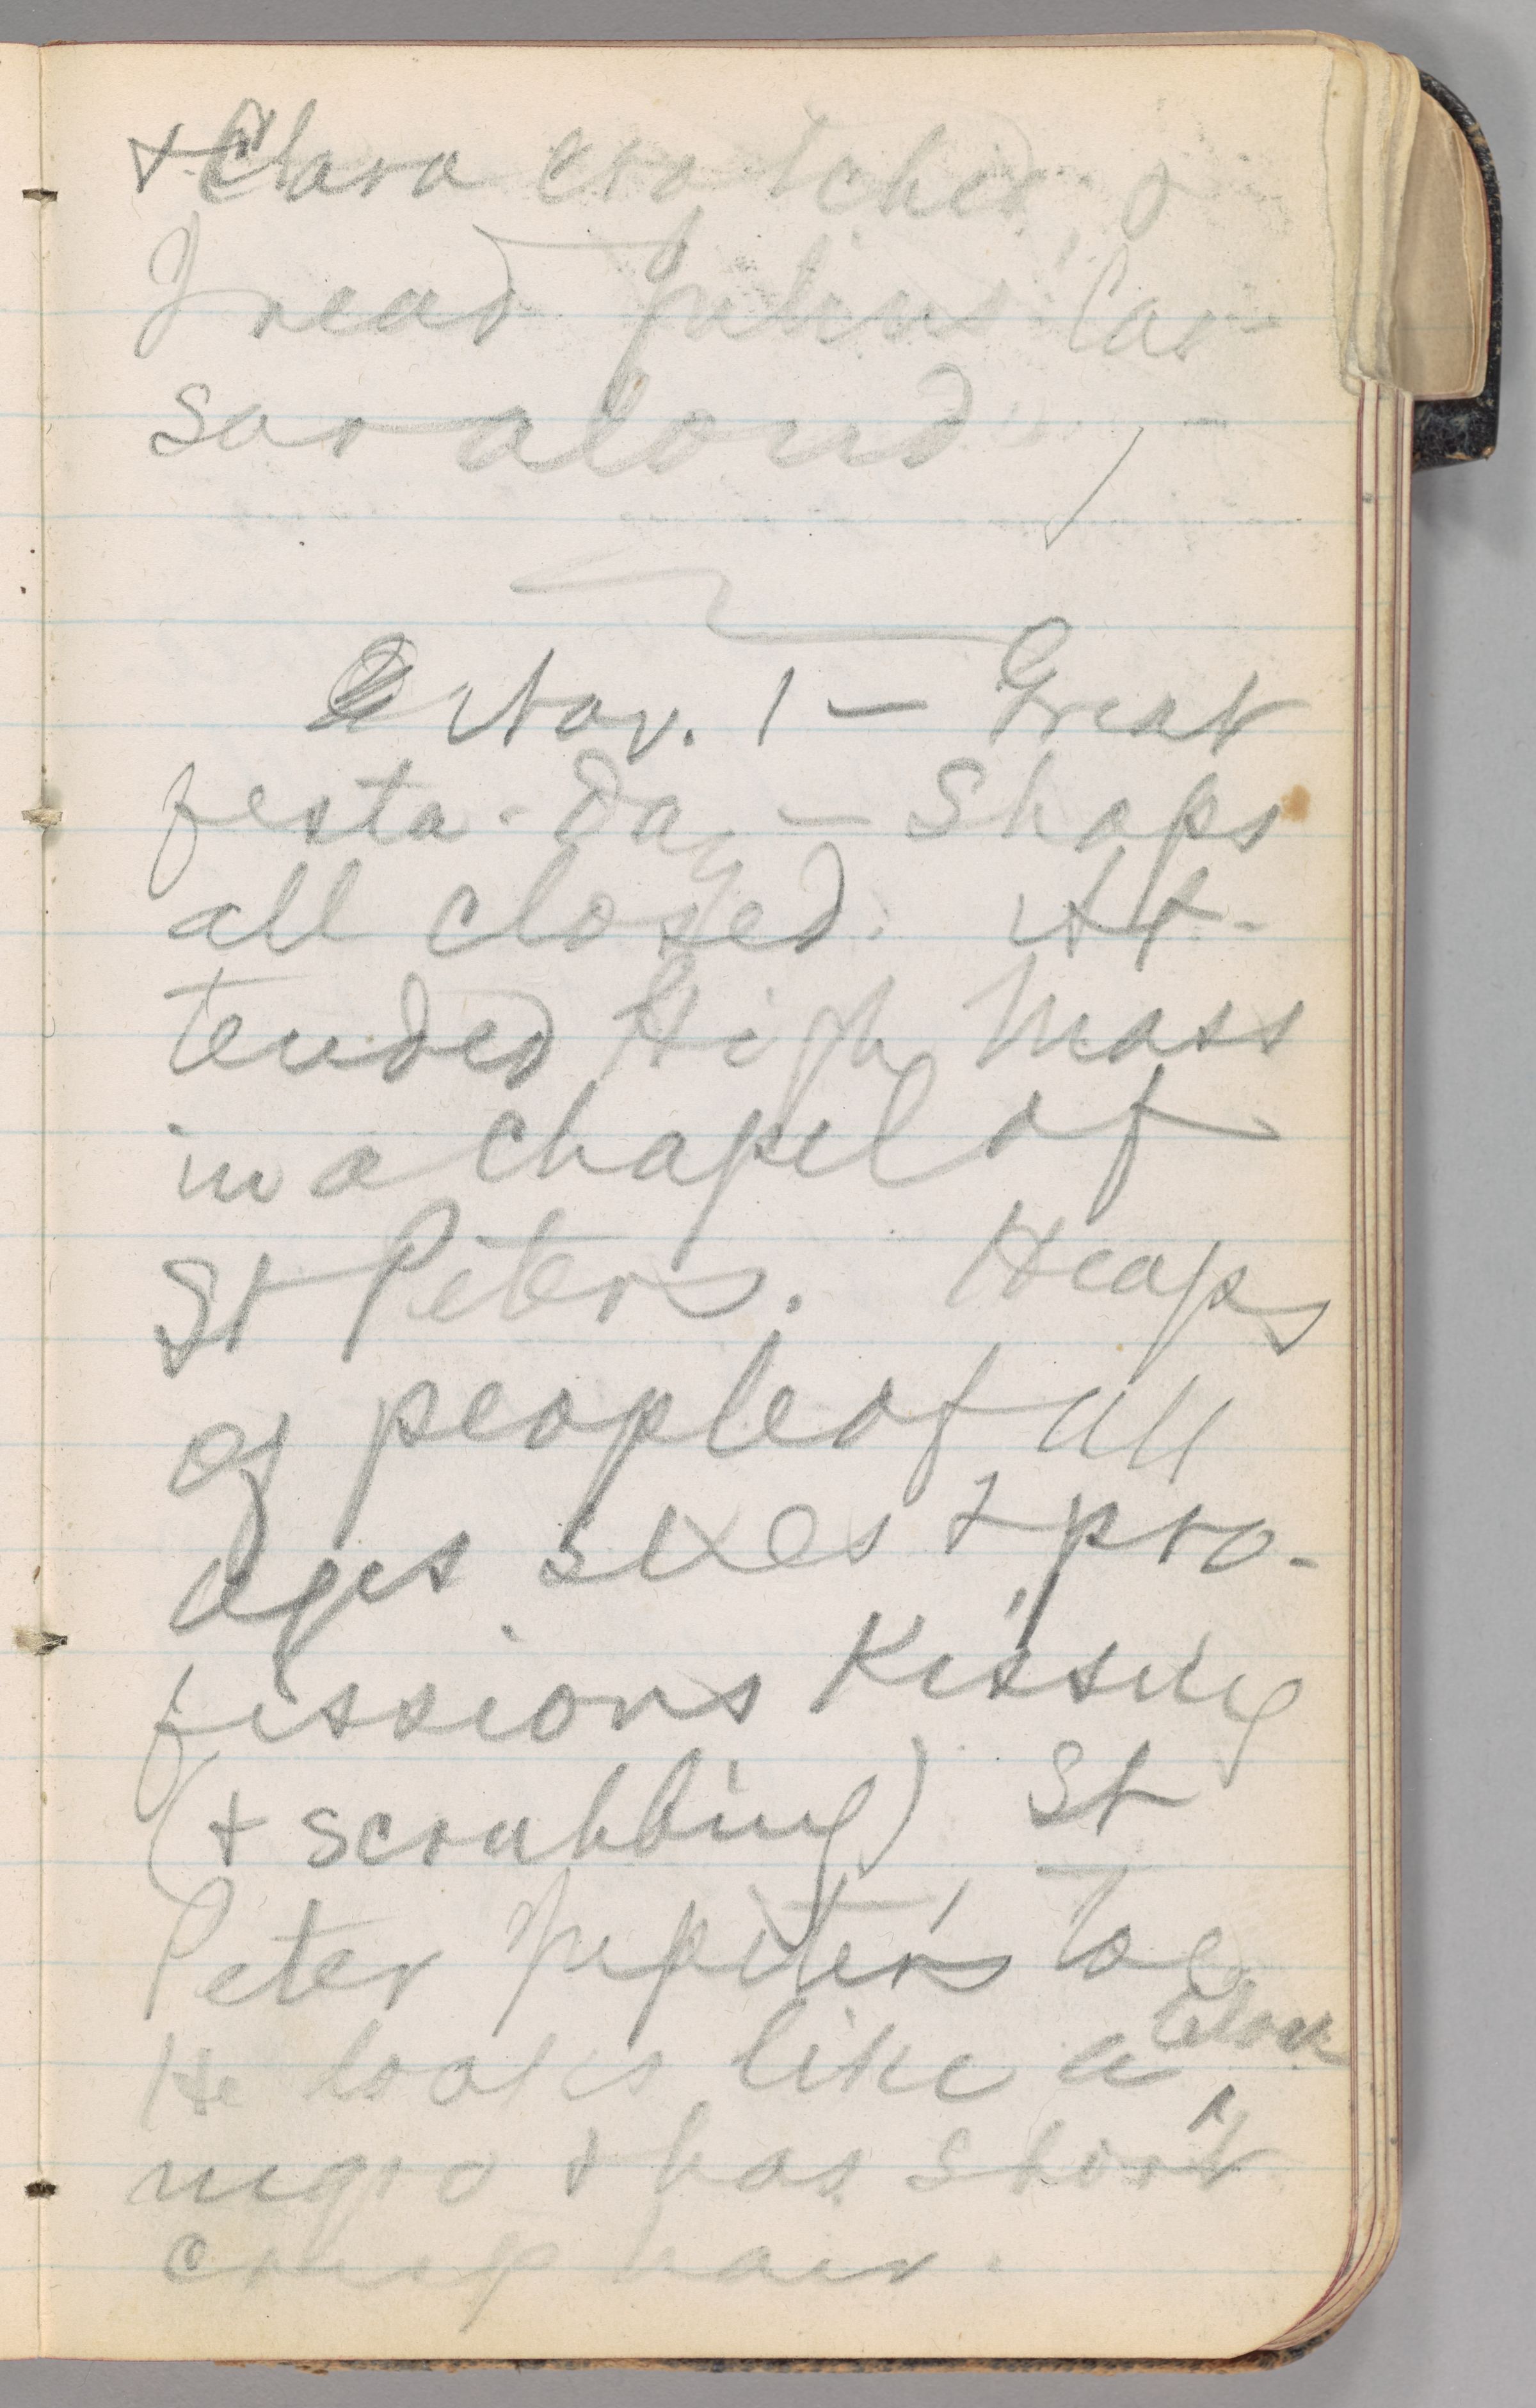 & Clara crotched &
I read Julius Cae-
sar aloud.
Nov. 1 — Great
festa-day — Shops
all closed. At-
tended High Mass
in a chapel of
St Peters. Heaps
of people of all
ages sexes & pro-
fessions kissing
(& scrubbing) St
Peter Jupiter's toe
He looks like a
negro & has short
crisp hair.